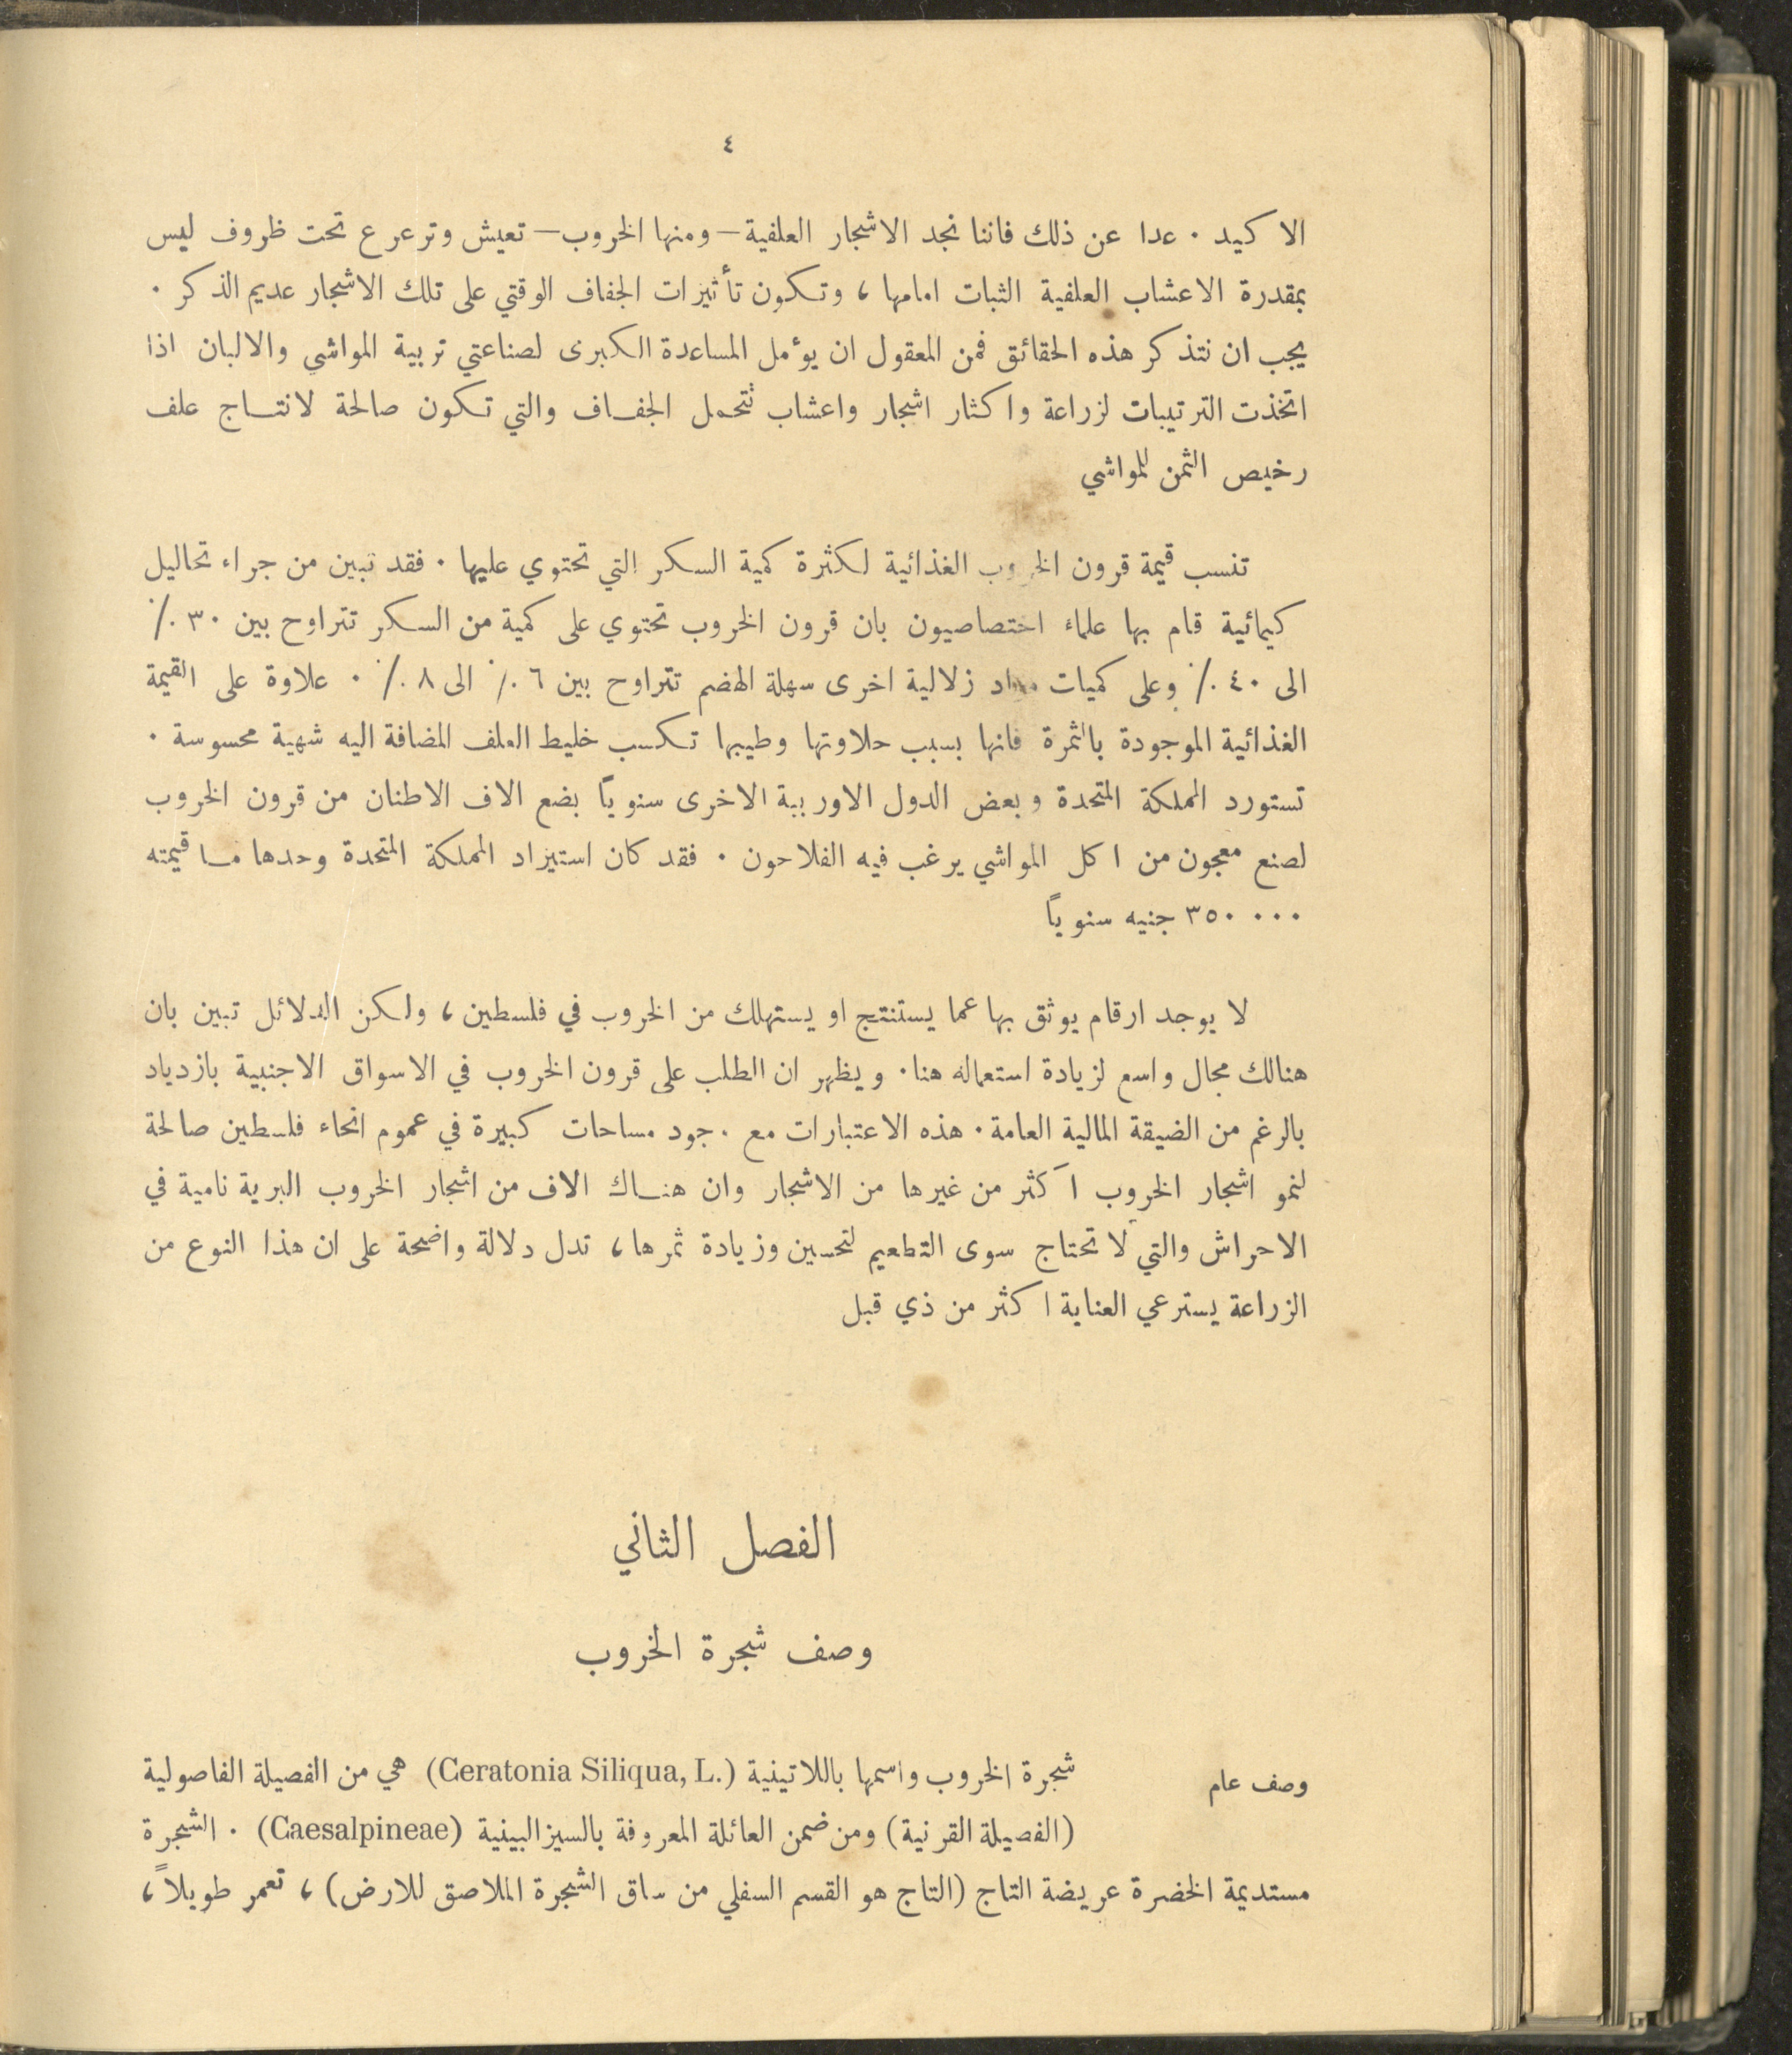 ٤
الاكيد . عدا عن ذلك فاننا نجد الاشجار العلفية — ومنها الخروب — تعيش وترعرع تحت ظروف ليس
بمقدرة الاعشاب العلفية الثبات امامها ، وتكون تأثيرات الجفاف الوقتي على تلك الاشجار عديم الذكر .
يجب ان نتذكر هذه الحقائق فمن المعقول ان يؤمل المساعدة الكبرى لصناعتي تربية المواشي والالبان اذا
اتخذت الترتيبات لزراعة واكثار اشجار واعشاب تتحمل الجفاف والتي تكون صالحة لانتاج علف
رخيص الثمن للمواشي
تنسب قيمة قرون الخروب الغذائية لكثرة كمية السكر التي تحتوي عليها . فقد تبين من جراء تحاليل
كيمائية قام بها علماء اختصاصيون بان قرون الخروب تحتوي على كمية من السكر تتراوح بين ٣٠ ٪
الى ٤٠ ٪ وعلى كميات مواد زلالية اخرى سهلة الهضم تتراوح بين ٦ ٪ الى ٨ ٪ . علاوة على القيمة
الغذائية الموجودة بالثمرة فانها بسبب حلاوتها وطيبها تكسب خليط العلف المضافة اليه شهية محسوسة .
تستورد المملكة المتحدة وبعض الدول الاوربية الاخرى سنوياً بضع الاف الاطنان من قرون الخروب
لصنع معجون من اكل المواشي يرغب فيه الفلاحون . فقد كان استيراد المملكة المتحدة وحدها ما قيمته
٣٥٠٠٠٠ جنيه سنوياً
لا يوجد ارقام يوثق بها عما يستنتج او يستهلك من الخروب في فلسطين ، ولكن الدلائل تبين بان
هنالك مجال واسع لزيادة استعماله هنا . ويظهر ان الطلب على قرون الخروب في الاسواق الاجنبية بازدياد
بالرغم من الضيقة المالية العامة . هذه الاعتبارات مع وجود مساحات كبيرة في عموم انحاء فلسطين صالحة
لنمو اشجار الخروب اكثر من غيرها من الاشجار وان هناك الاف من اشجار الخروب البرية نامية في
الاحراش والتي لا تحتاج سوى التطعيم لتحسين وزيادة ثمرها ، تدل دلالة واضحة على ان هذا النوع من
الزراعة يسترعي العناية اكثر من ذي قبل
الفصل الثاني
وصف شجرة الخروب
وصف عام
شجرة الخروب واسمها باللاتينية (Ceratonia Siliqua, L.) هي من الفصيلة الفاصولية
(الفصيلة القرنية) ومن ضمن العائلة المعروفة بالسيزالبينية (Caesalpineae) . الشجرة
مستديمة الخضرة عريضة التاج (التاج هو القسم السفلي من ساق الشجرة الملاصق للارض) ، تعمر طويلاً ،